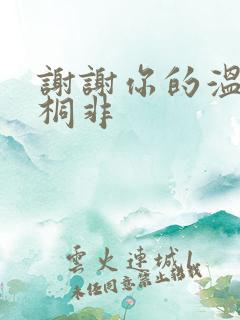 謝謝你的溫
桐非
雲火連城
未經同意禁止轉載